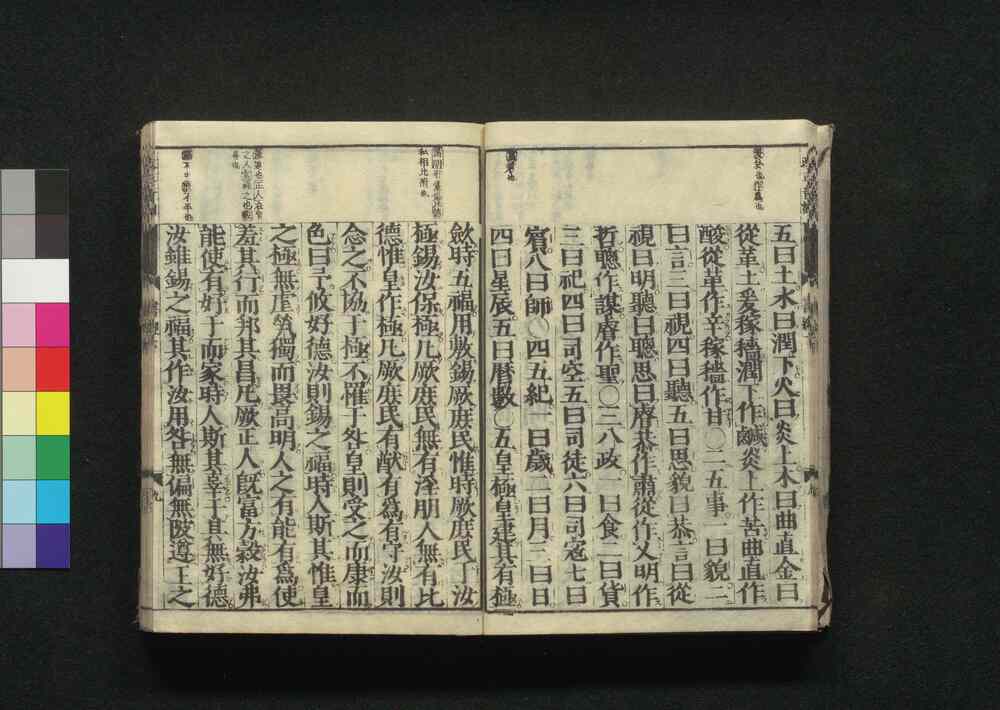 五曰土水曰潤下火曰炎上木曰曲直金曰
從革土爰稼穡潤下作鹹炎上作苦曲直作
酸從革作辛稼穡作甘〇二五事一曰貌二
曰言三曰視四曰聽五曰思貌曰恭言曰從
視曰明聽曰聰思曰睿恭作肅從作乂明作
哲聰作謀睿作聖〇三八政一曰食二曰貨
三曰祀四曰司空五曰司徒六曰司寇七曰
賓八曰師〇四五紀一曰歲二曰月三曰日
四曰星辰五曰曆數〇五皇極皇建其有極
斂時五福用敷錫厥庶民惟時厥庶民于汝
極錫汝保極凡厥庶民無有淫朋人無有比
德惟皇作極凡厥庶民有猷有為有守汝則
念之不協于極不罹于咎皇則受之而康而
色曰予攸好德汝則錫之福時人斯其惟皇
之極無虐煢獨而畏高明人之有能有為使
羞其行而邦其昌凡厥正人既富方穀汝弗
能使有好于而家時人斯其辜于其無好德
汝雖錫之福其作汝用咎無偏無陂遵王之